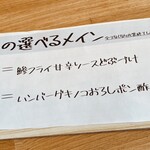 の選べるメイン
= 鯵フライ甘辛ソースどぶづけ
= ハンバーグキノコおろしポン酢